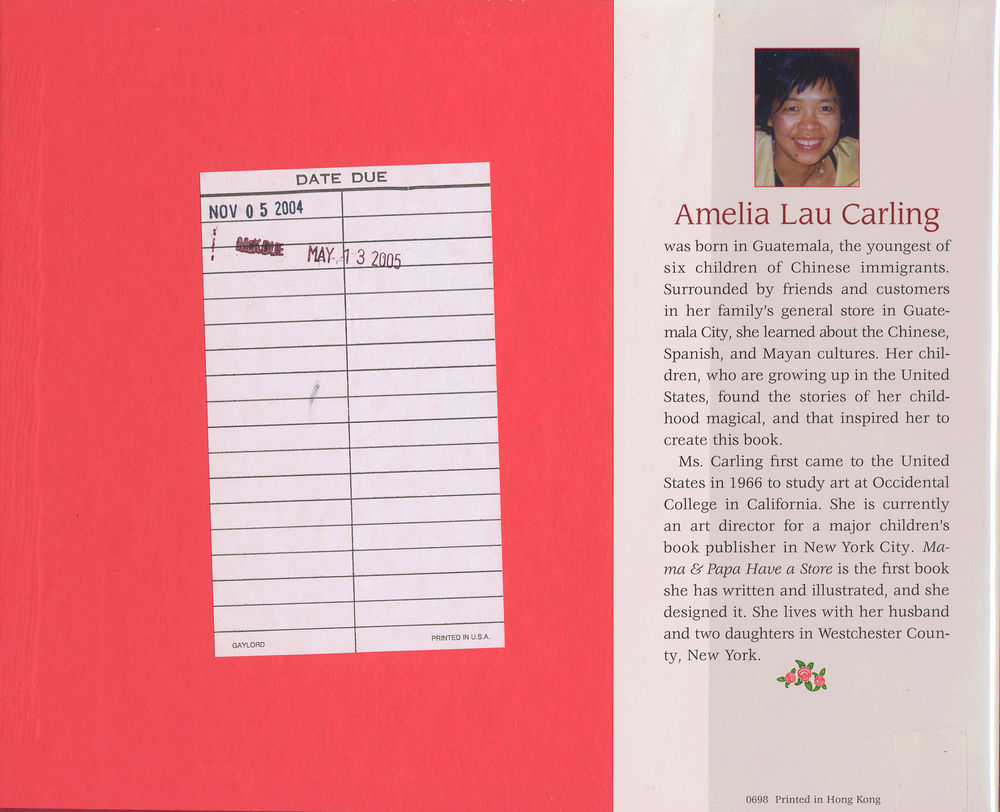 DATE DUE
NOV 0 5 2004
MAY 1 3 2005
GAYLORD
PRINTED IN U.S.A.
Amelia Lau Carling
was born in Guatemala, the youngest of
six children of Chinese immigrants.
Surrounded by friends and customers
in her family's general store in Guate-
mala City, she learned about the Chinese,
Spanish, and Mayan cultures. Her chil-
dren, who are growing up in the United
States, found the stories of her child-
hood magical, and that inspired her to
create this book.
Ms. Carling first came to the United
States in 1966 to study art at Occidental
College in California. She is currently
an art director for a major children's
book publisher in New York City. Ma-
ma & Papa Have a Store is the first book
she has written and illustrated, and she
designed it. She lives with her husband
and two daughters in Westchester Coun-
ty, New York.
0698 Printed in Hong Kong